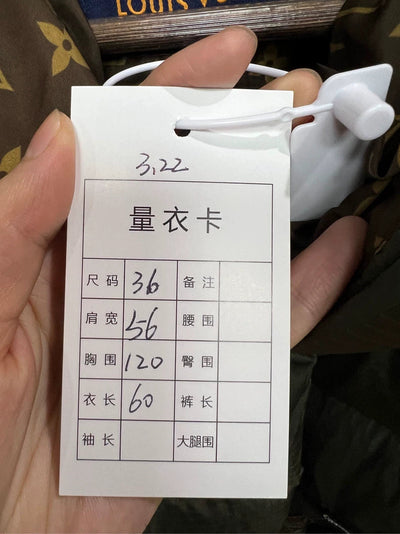 LOUIS VU
3,22
量衣卡
尺码 36 备注
肩宽 56 腰围
胸围 120 臀围
衣长 60 裤长
袖长 大腿围